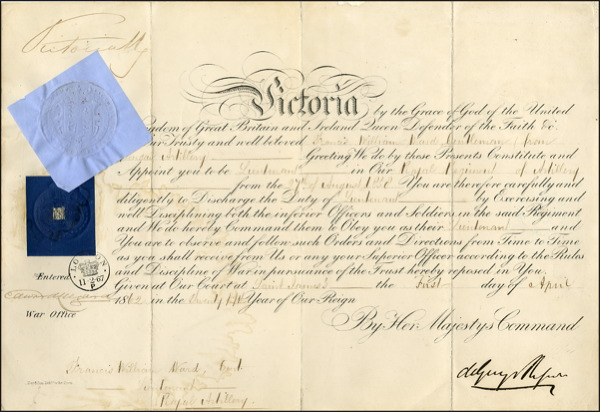 Victoria R
Victoria by the Grace of God of the United
Kingdom of Great Britain and Ireland Queen Defender of the Faith &c.
Our Trusty and well beloved Francis William Ward Gentleman, from
Bengal Artillery Greeting We do by these Presents Constitute and
Appoint you to be Lieutenant in Our Royal Regiment of Artillery
from the of August 1858 You are therefore carefully and
diligently to Discharge the Duty of Lieutenant by Exercising and
well Disciplining both the inferior Officers and Soldiers in the said Regiment
and We do hereby Command them to Obey you as their Lieutenant and
You are to observe and follow such Orders and Directions from Time to Time
as you shall receive from Us or any your Superior Officer according to the Rules
and Discipline of War in pursuance of the Trust hereby reposed in You
Given at Our Court at Saint James's the First day of April
1862 in the Twenty fifth Year of Our Reign
By Her Majesty's Command
LONDON
11·2·67
P
Entered
War Office
Francis William Ward, Gent
Lieutenant
Royal Artillery
de Grey & Ripon